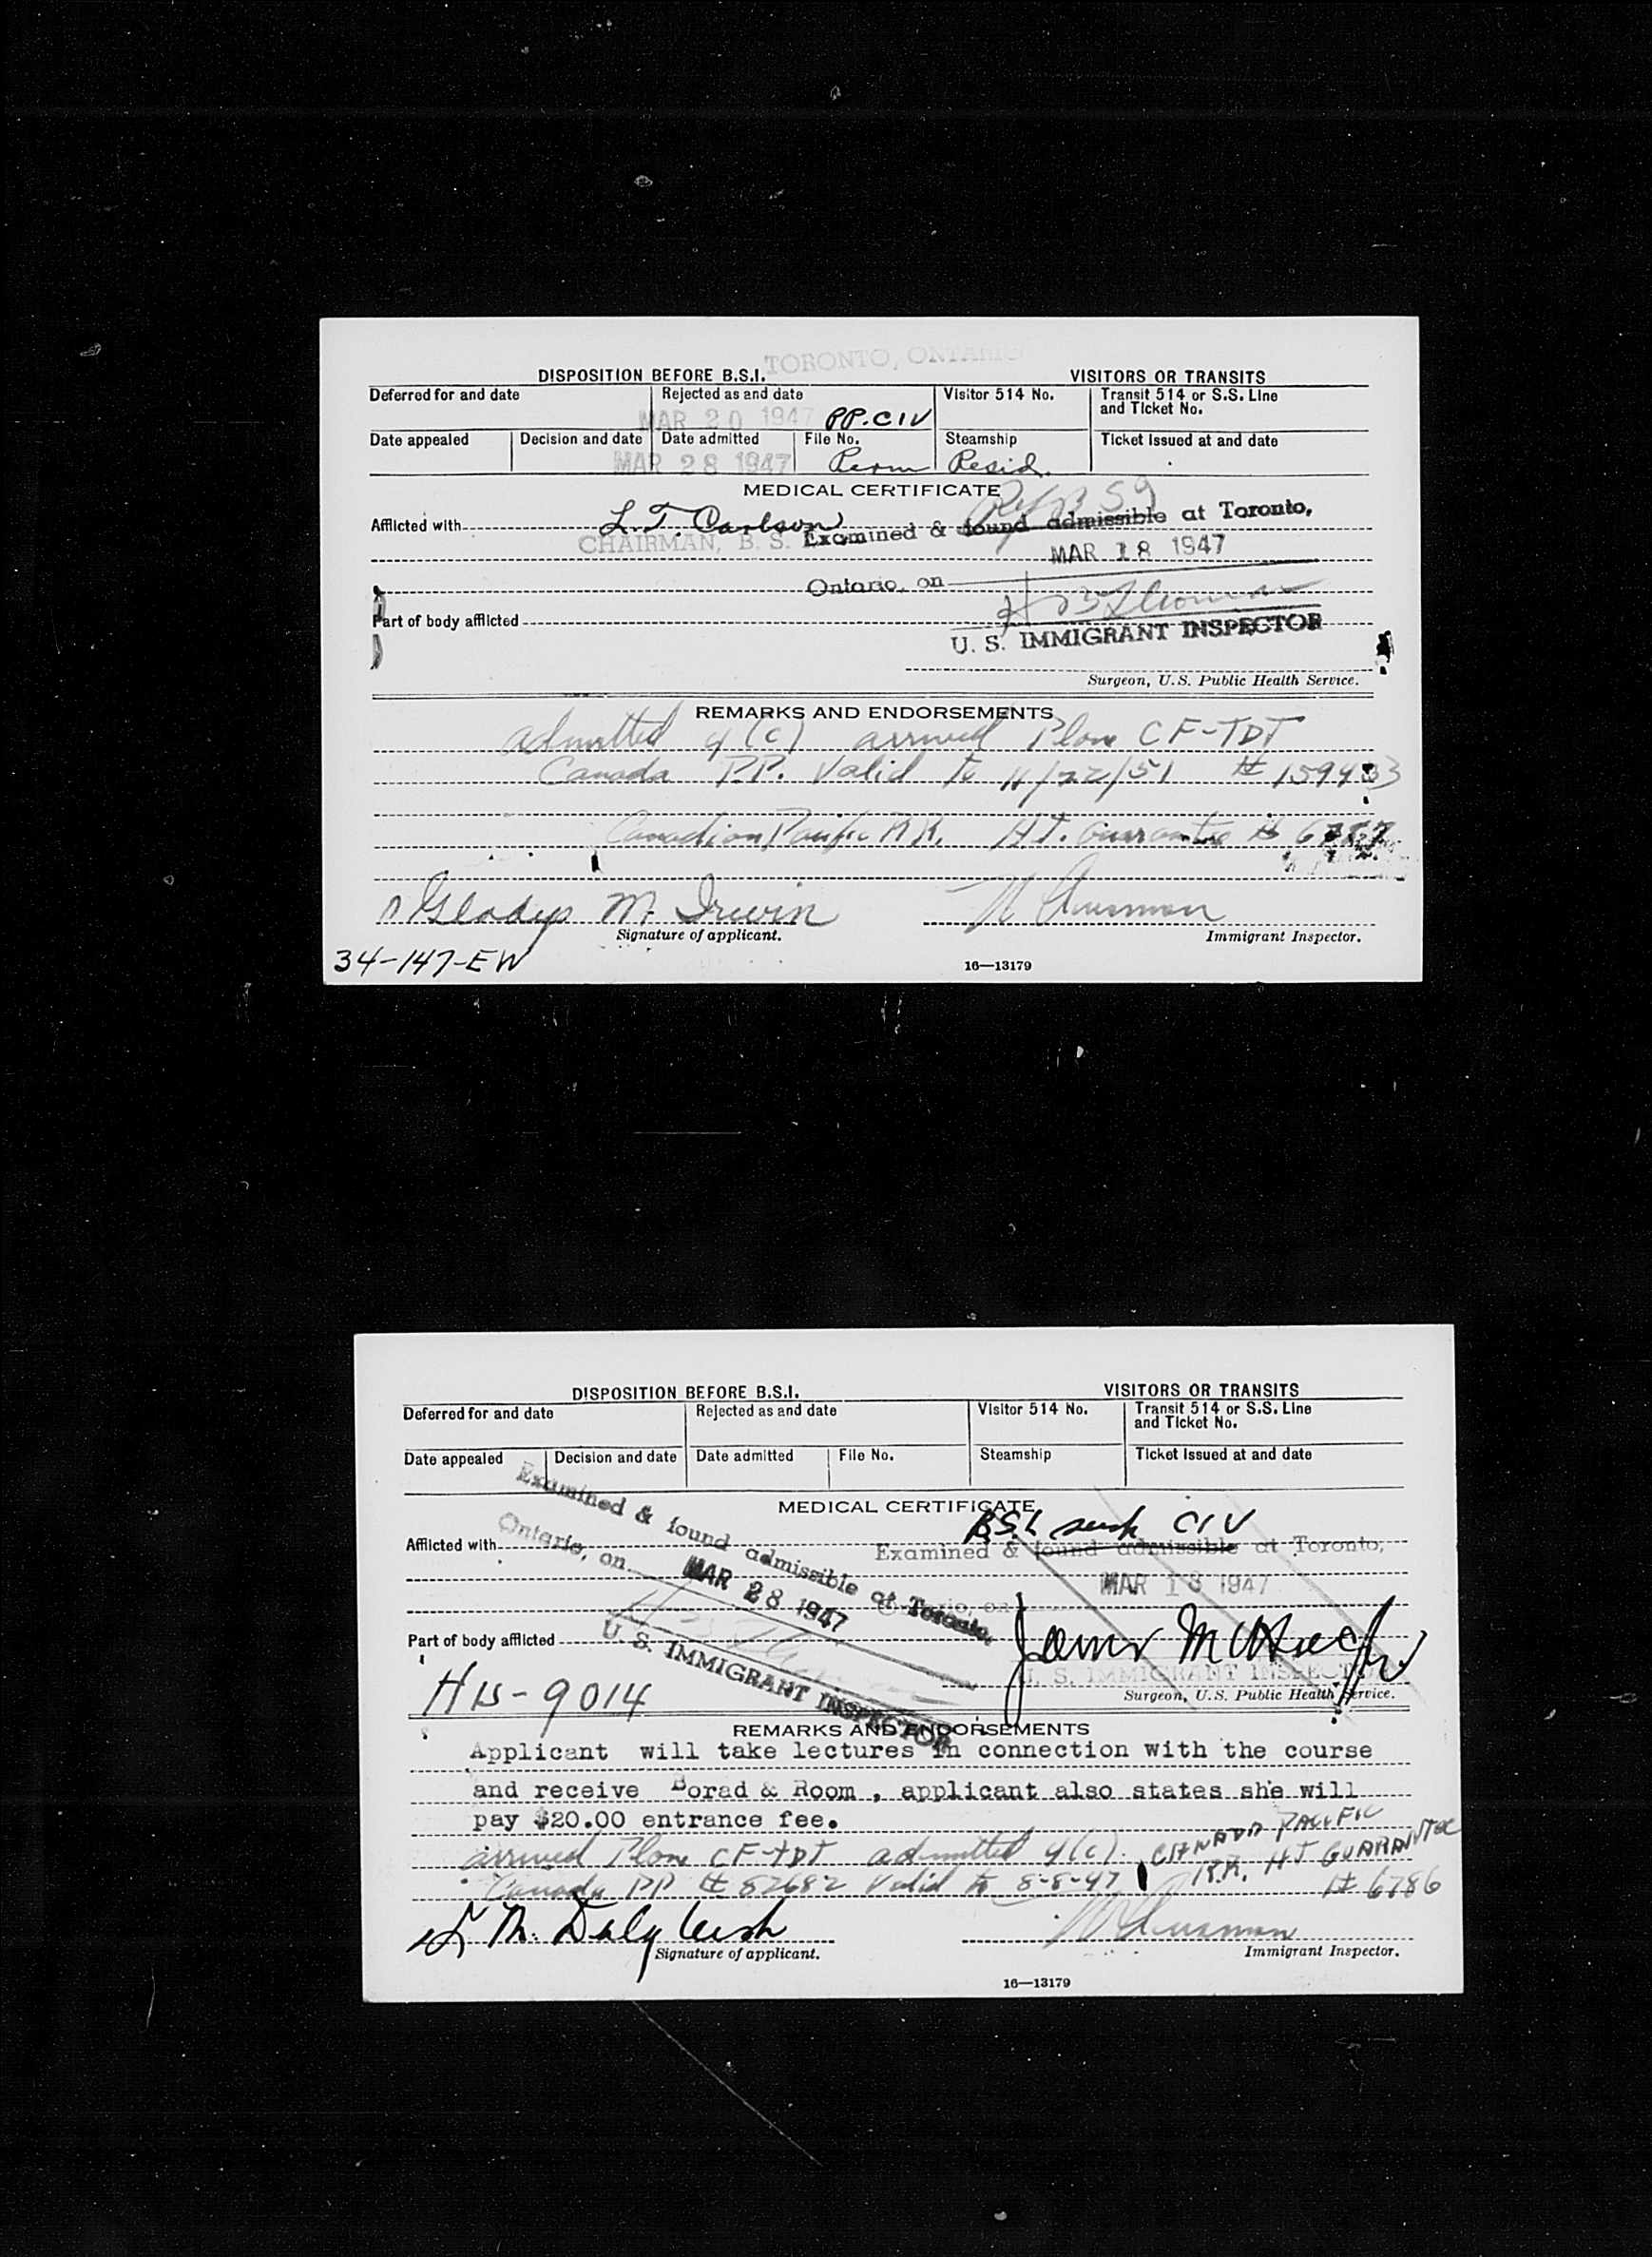 TORONTO, ONTARIO
DISPOSITION BEFORE B.S.I. VISITORS OR TRANSITS
Deferred for and date Rejected as and date Visitor 514 No. Transit 514 or S.S. Line
and Ticket No.
MAR 20 1947 PP.CIV
Date appealed Decision and date Date admitted File No. Steamship Ticket Issued at and date
MAR 28 1947 Perm Resid.
MEDICAL CERTIFICATE
Afflicted with L. T. Carlson Examined & found admissible at Toronto,
CHAIRMAN, B. S.
MAR 18 1947
Ontario, on
Part of body afflicted
U. S. IMMIGRANT INSPECTOR
Surgeon, U.S. Public Health Service.
REMARKS AND ENDORSEMENTS
admitted 4(c) arrived Plane CF-TDT
Canada P.P. Valid to 11/22/51 #
Canadian Pacific RR. HT. Guarantee #
Gladys M. Irwin
Signature of applicant. Immigrant Inspector.
34-147-EW
16—13179
DISPOSITION BEFORE B.S.I. VISITORS OR TRANSITS
Deferred for and date Rejected as and date Visitor 514 No. Transit 514 or S.S. Line
and Ticket No.
Date appealed Decision and date Date admitted File No. Steamship Ticket Issued at and date
MEDICAL CERTIFICATE
B.S.I. CIV
Afflicted with Examined & found admissible at Toronto,
MAR 18 1947
Examined & found admissible at Toronto,
Ontario, on
MAR 28 1947
U. S. IMMIGRANT INSPECTOR
Part of body afflicted
James
U. S. IMMIGRANT INSPECTOR
Surgeon, U.S. Public Health Service.
9014
REMARKS AND ENDORSEMENTS
Applicant will take lectures in connection with the course
and receive Borad & Room , applicant also states she will
pay $20.00 entrance fee.
arrived Plane CF-TDT admitted 4(c). CANADA PACIFIC
R.R. HT GUARANTEE
Canada PP # 82682 Valid to 8-8-47 # 6786
M. Dalgleish
Signature of applicant. Immigrant Inspector.
16—13179